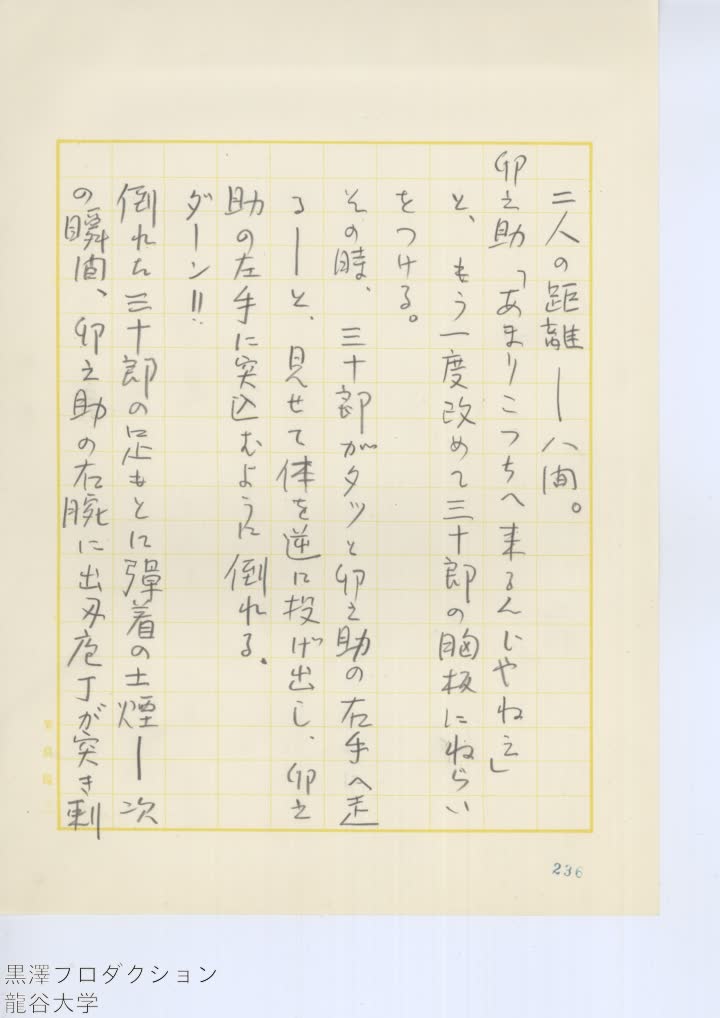 二人の距離―八間。
卯之助「あまりこっちへ来るんじやねえ」
と、もう一度改めて三十郎の胸板にねらい
をつける。
その時、三十郎がタッと卯之助の右手へ走
る―と、見せて体を逆に投げ出し、卯之
助の左手に突込むように倒れる。
ダーン!!
倒れた三十郎の足もとに弾着の土煙―次
の瞬間、卯之助の右腕に出刃庖丁が突き刺
236
黒澤プロダクション
龍谷大学